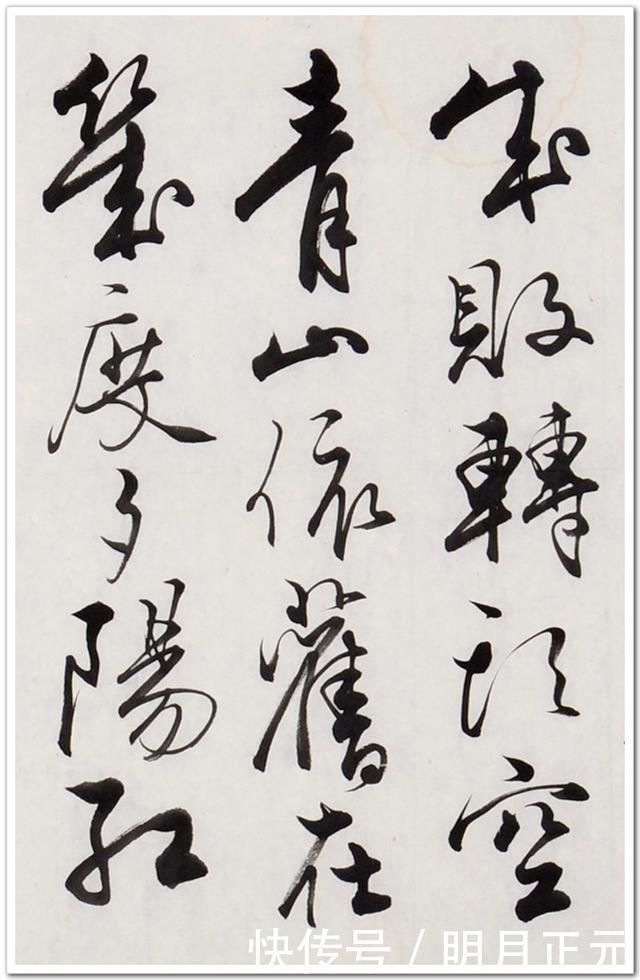 成敗轉頭空
青山依舊在
幾度夕陽紅
快传号/明月正元